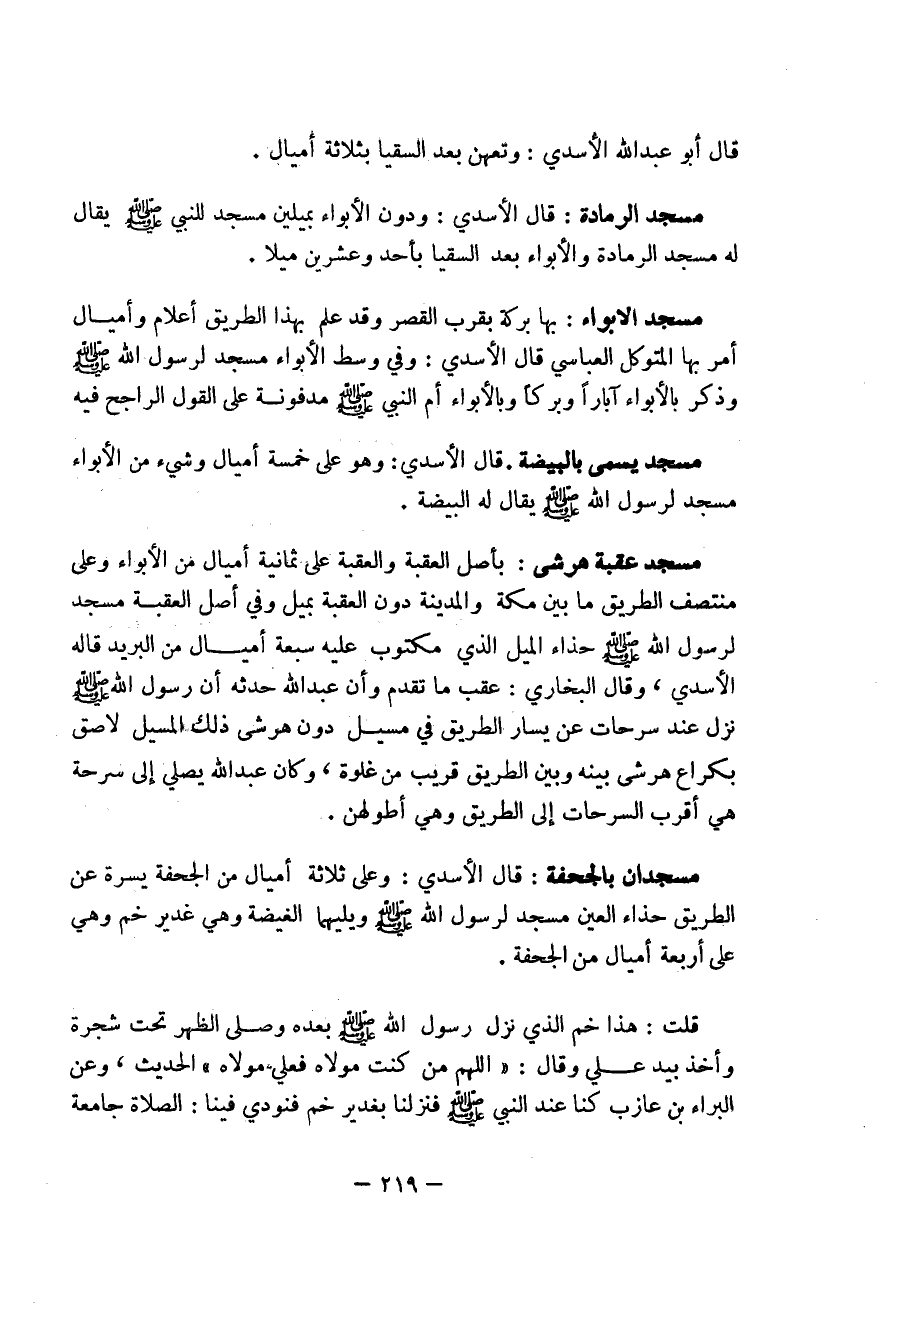 قال أبو عبدالله الأسدي : وتعهن بعد السقيا بثلاثة أميال .
مسجد الرمادة : قال الأسدي : ودون الأبواء بميلين مسجد للنبي ﷺ يقال
له مسجد الرمادة والأبواء بعد السقيا بأحد وعشرين ميلا .
مسجد الابواء : بها بركة بقرب القصر وقد علم بهذا الطريق أعلام وأميـال
أمر بها المتوكل العباسي قال الأسدي : وفي وسط الأبواء مسجد لرسول الله ﷺ
وذكر بالأبواء آباراً وبركاً وبالأبواء أم النبي ﷺ مدفونـة على القول الراجح فيه
مسجد يسمى بالبيضة . قال الأسدي : وهو على خمسة أميال وشيء من الأبواء
مسجد لرسول الله ﷺ يقال له البيضة .
مسجد عقبة هرشى : بأصل العقبة والعقبة على ثمانية أميال من الأبواء وعلى
منتصف الطريق ما بين مكة والمدينة دون العقبة بميل وفي أصل العقبـة مسجد
لرسول الله ﷺ حذاء الميل الذي مكتوب عليه سبعة أميـــال من البريد قاله
الأسدي ، وقال البخاري : عقب ما تقدم وأن عبدالله حدثه أن رسول الله ﷺ
نزل عند سرحات عن يسار الطريق في مسيـل دون هرشى ذلك المسيل لاصق
بكراع هرشى بينه وبين الطريق قريب من غلوة ، وكان عبدالله يصلي إلى سرحة
هي أقرب السرحات إلى الطريق وهي أطولهن .
مسجدان بالجحفة : قال الأسدي : وعلى ثلاثة أميال من الجحفة يسرة عن
الطريق حذاء العين مسجد لرسول الله ﷺ ويليها الغيضة وهي غدير خم وهي
على أربعة أميال من الجحفة .
قلت : هذا خم الذي نزل رسول الله ﷺ بعده وصـلى الظهر تحت شجرة
وأخذ بيد عـــلي وقال : « اللهم من كنت مولاه فعلي مولاه » الحديث ، وعن
البراء بن عازب كنا عند النبي ﷺ فنزلنا بغدير خم فنودي فينا : الصلاة جامعة
– ٢١٩ –